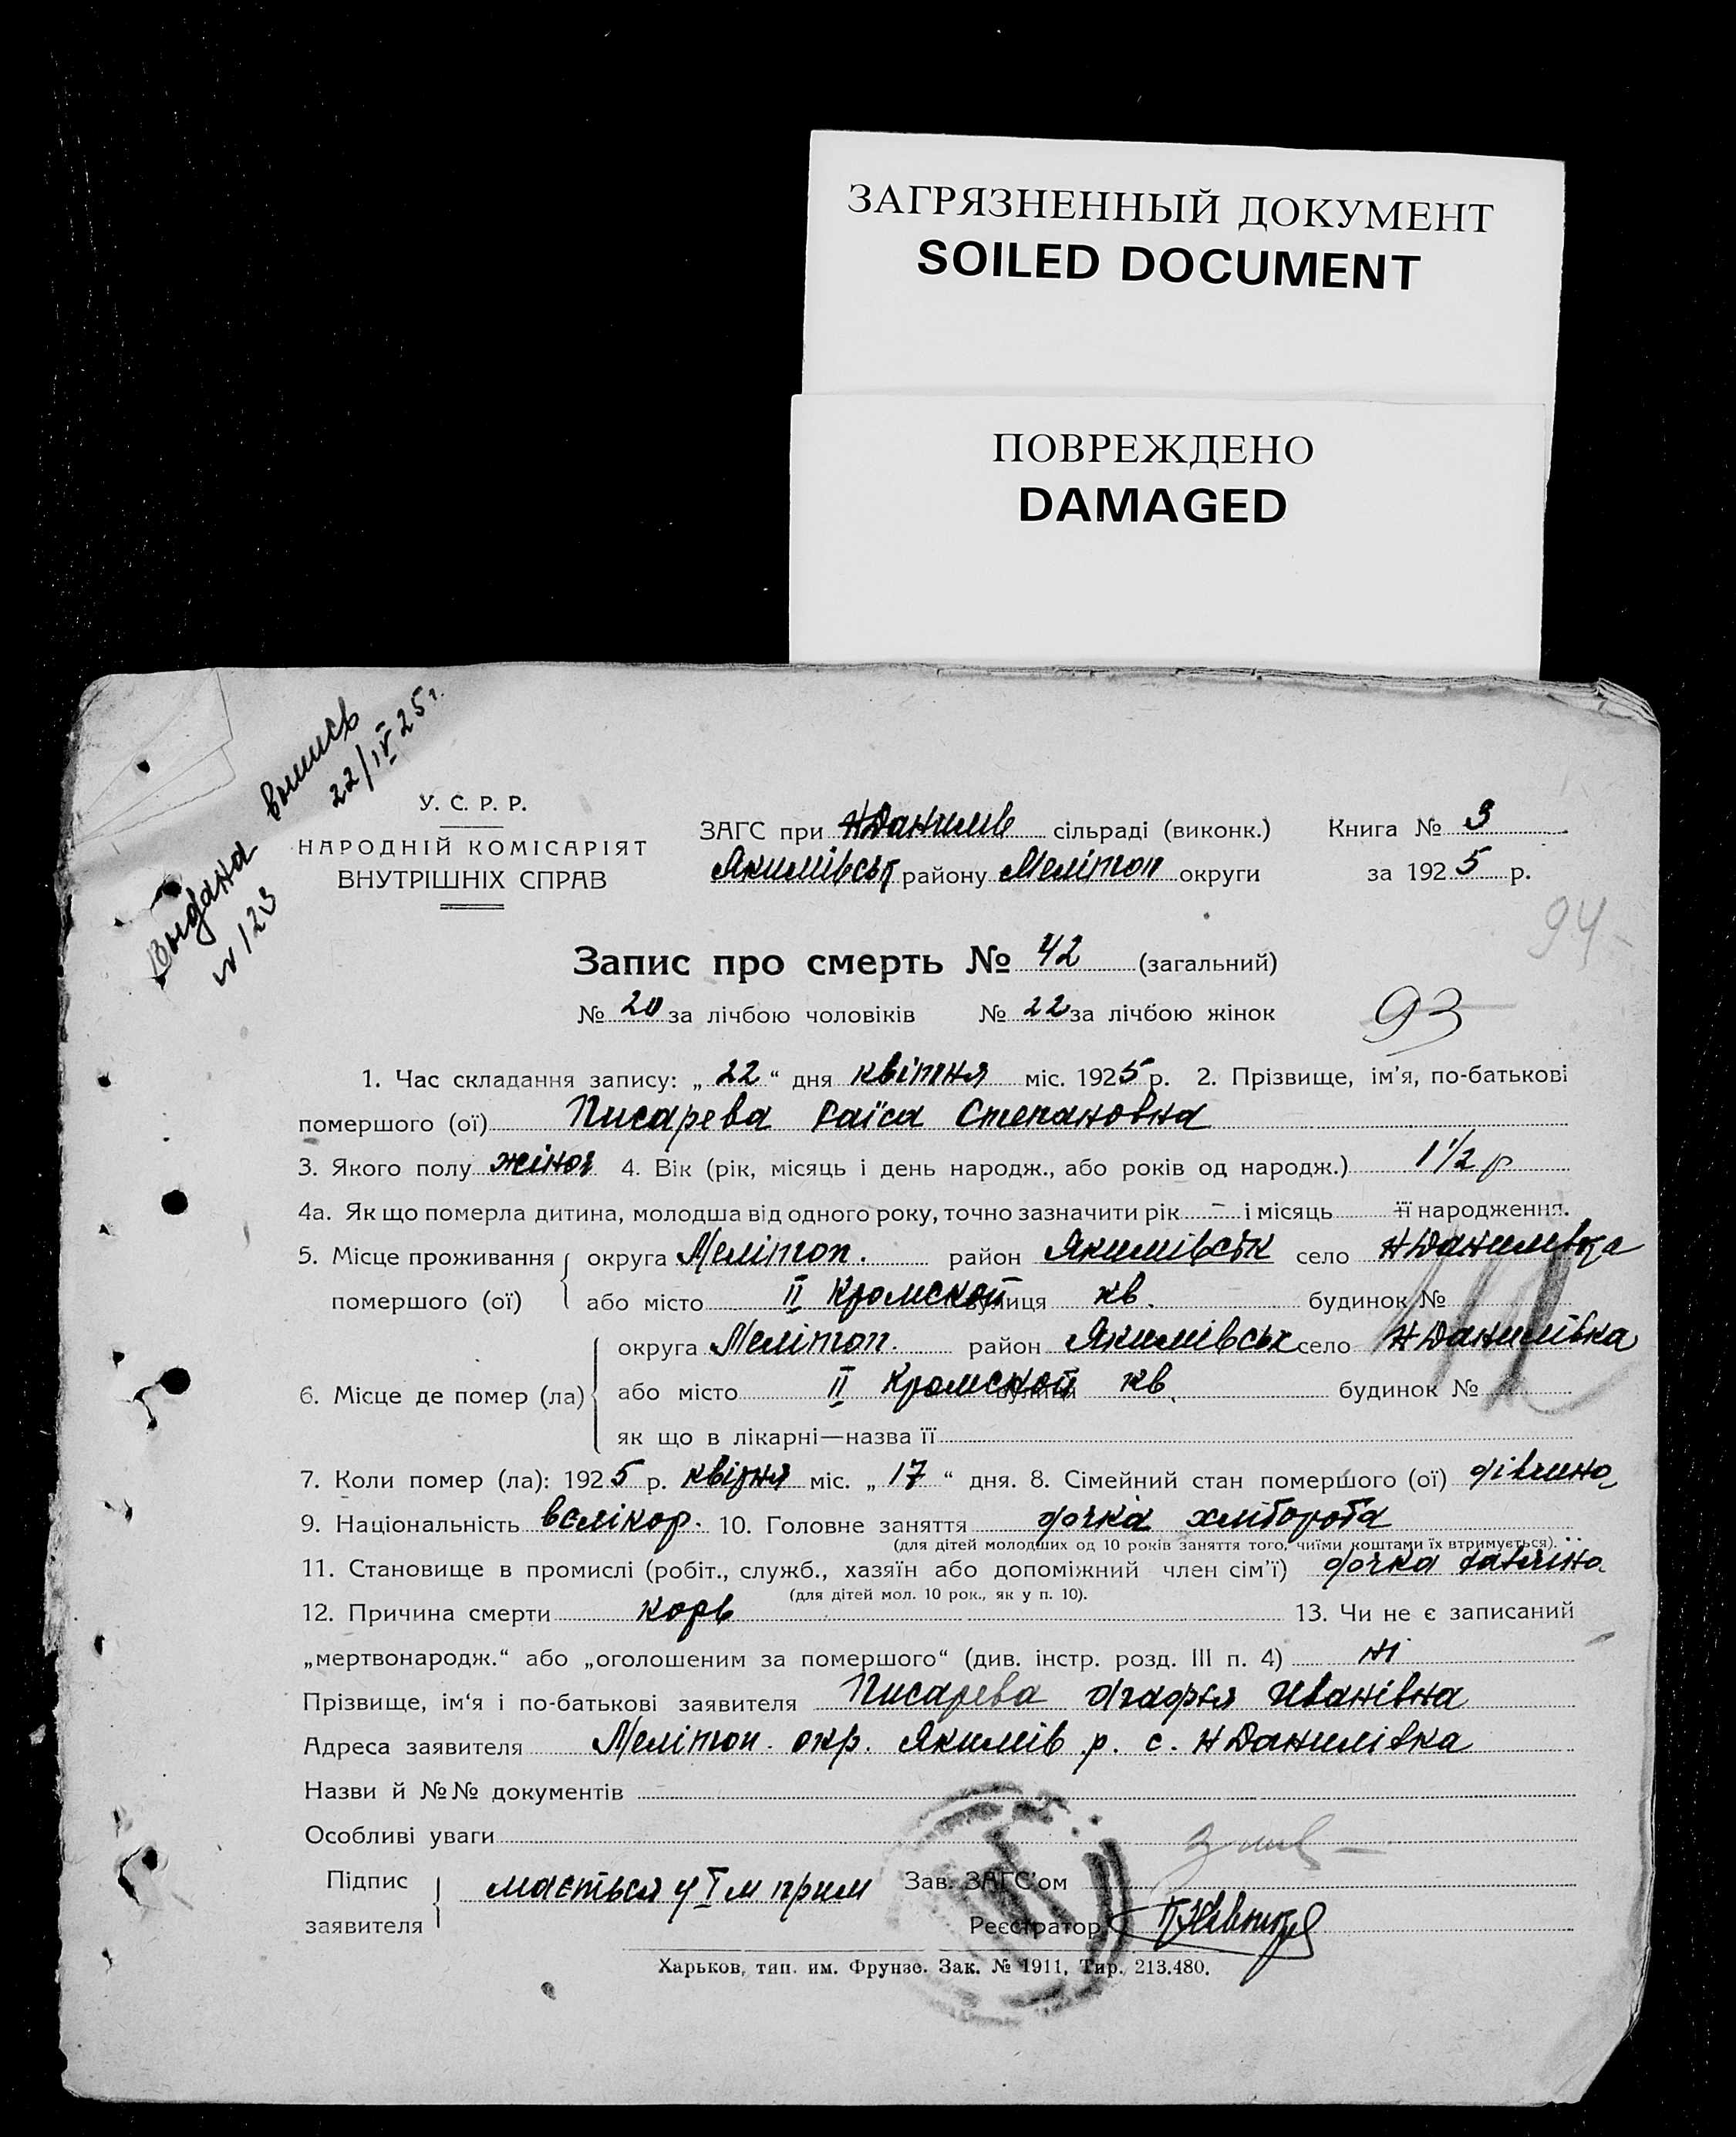 ЗАГРЯЗНЕННЫЙ ДОКУМЕНТ
SOILED DOCUMENT
ПОВРЕЖДЕНО
DAMAGED
Выдана выпись
№ 123 22/IV 25 г.
У. С. Р. Р.
НАРОДНІЙ КОМІСАРІЯТ
ВНУТРІШНІХ СПРАВ
ЗАГС при НДанилів сільраді (виконк.) Книга № 3
Якимівськ району Мелітоп округи за 1925 р.
94
Запис про смерть № 42 (загальний)
№ 20 за лічбою чоловіків № 22 за лічбою жінок
93
1. Час складання запису: „ 22 “ дня квітня міс. 1925 р. 2. Прізвище, ім'я, по-батькові
помершого (ої) Писарева Раїса Степановна
3. Якого полу жіноч 4. Вік (рік, місяць і день народж., або років од народж.) 1 1/2 р
4а. Як що померла дитина, молодша від одного року, точно зазначити рік - і місяць її народження.
5. Місце проживання округа Мелітоп. район Якимівськ село НДанилівка
помершого (ої) або місто II Кромской вулиця кв. будинок №
округа Мелітоп. район Якимівськ село НДанилівка
6. Місце де помер (ла) або місто II Кромской вулиця кв. будинок №
як що в лікарні—назва її
7. Коли помер (ла): 1925 р. квітня міс. „ 17 “ дня. 8. Сімейний стан помершого (ої) дівчина
9. Національність велікор. 10. Головне заняття дочка хлібороба
(для дітей молодших од 10 років заняття того, чиїми коштами їх втримується).
11. Становище в промислі (робіт., служб., хазяїн або допоміжний член сім'ї) дочка
(для дітей мол. 10 рок., як у п. 10).
12. Причина смерти корь 13. Чи не є записаний
„мертвонародж.“ або „оголошеним за помершого“ (див. інстр. розд. III п. 4) ні
Прізвище, ім'я і по-батькові заявителя Писарева Агафья Иванівна
Адреса заявителя Мелітоп. окр. Якимів р. с. НДанилівка
Назви й №№ документів
Особливі уваги
Підпис заявителя мається у I м прим Зав. ЗАГС'ом
Реєстратор
Харьков, тип. им. Фрунзе. Зак. № 1911. Тир. 213.480.